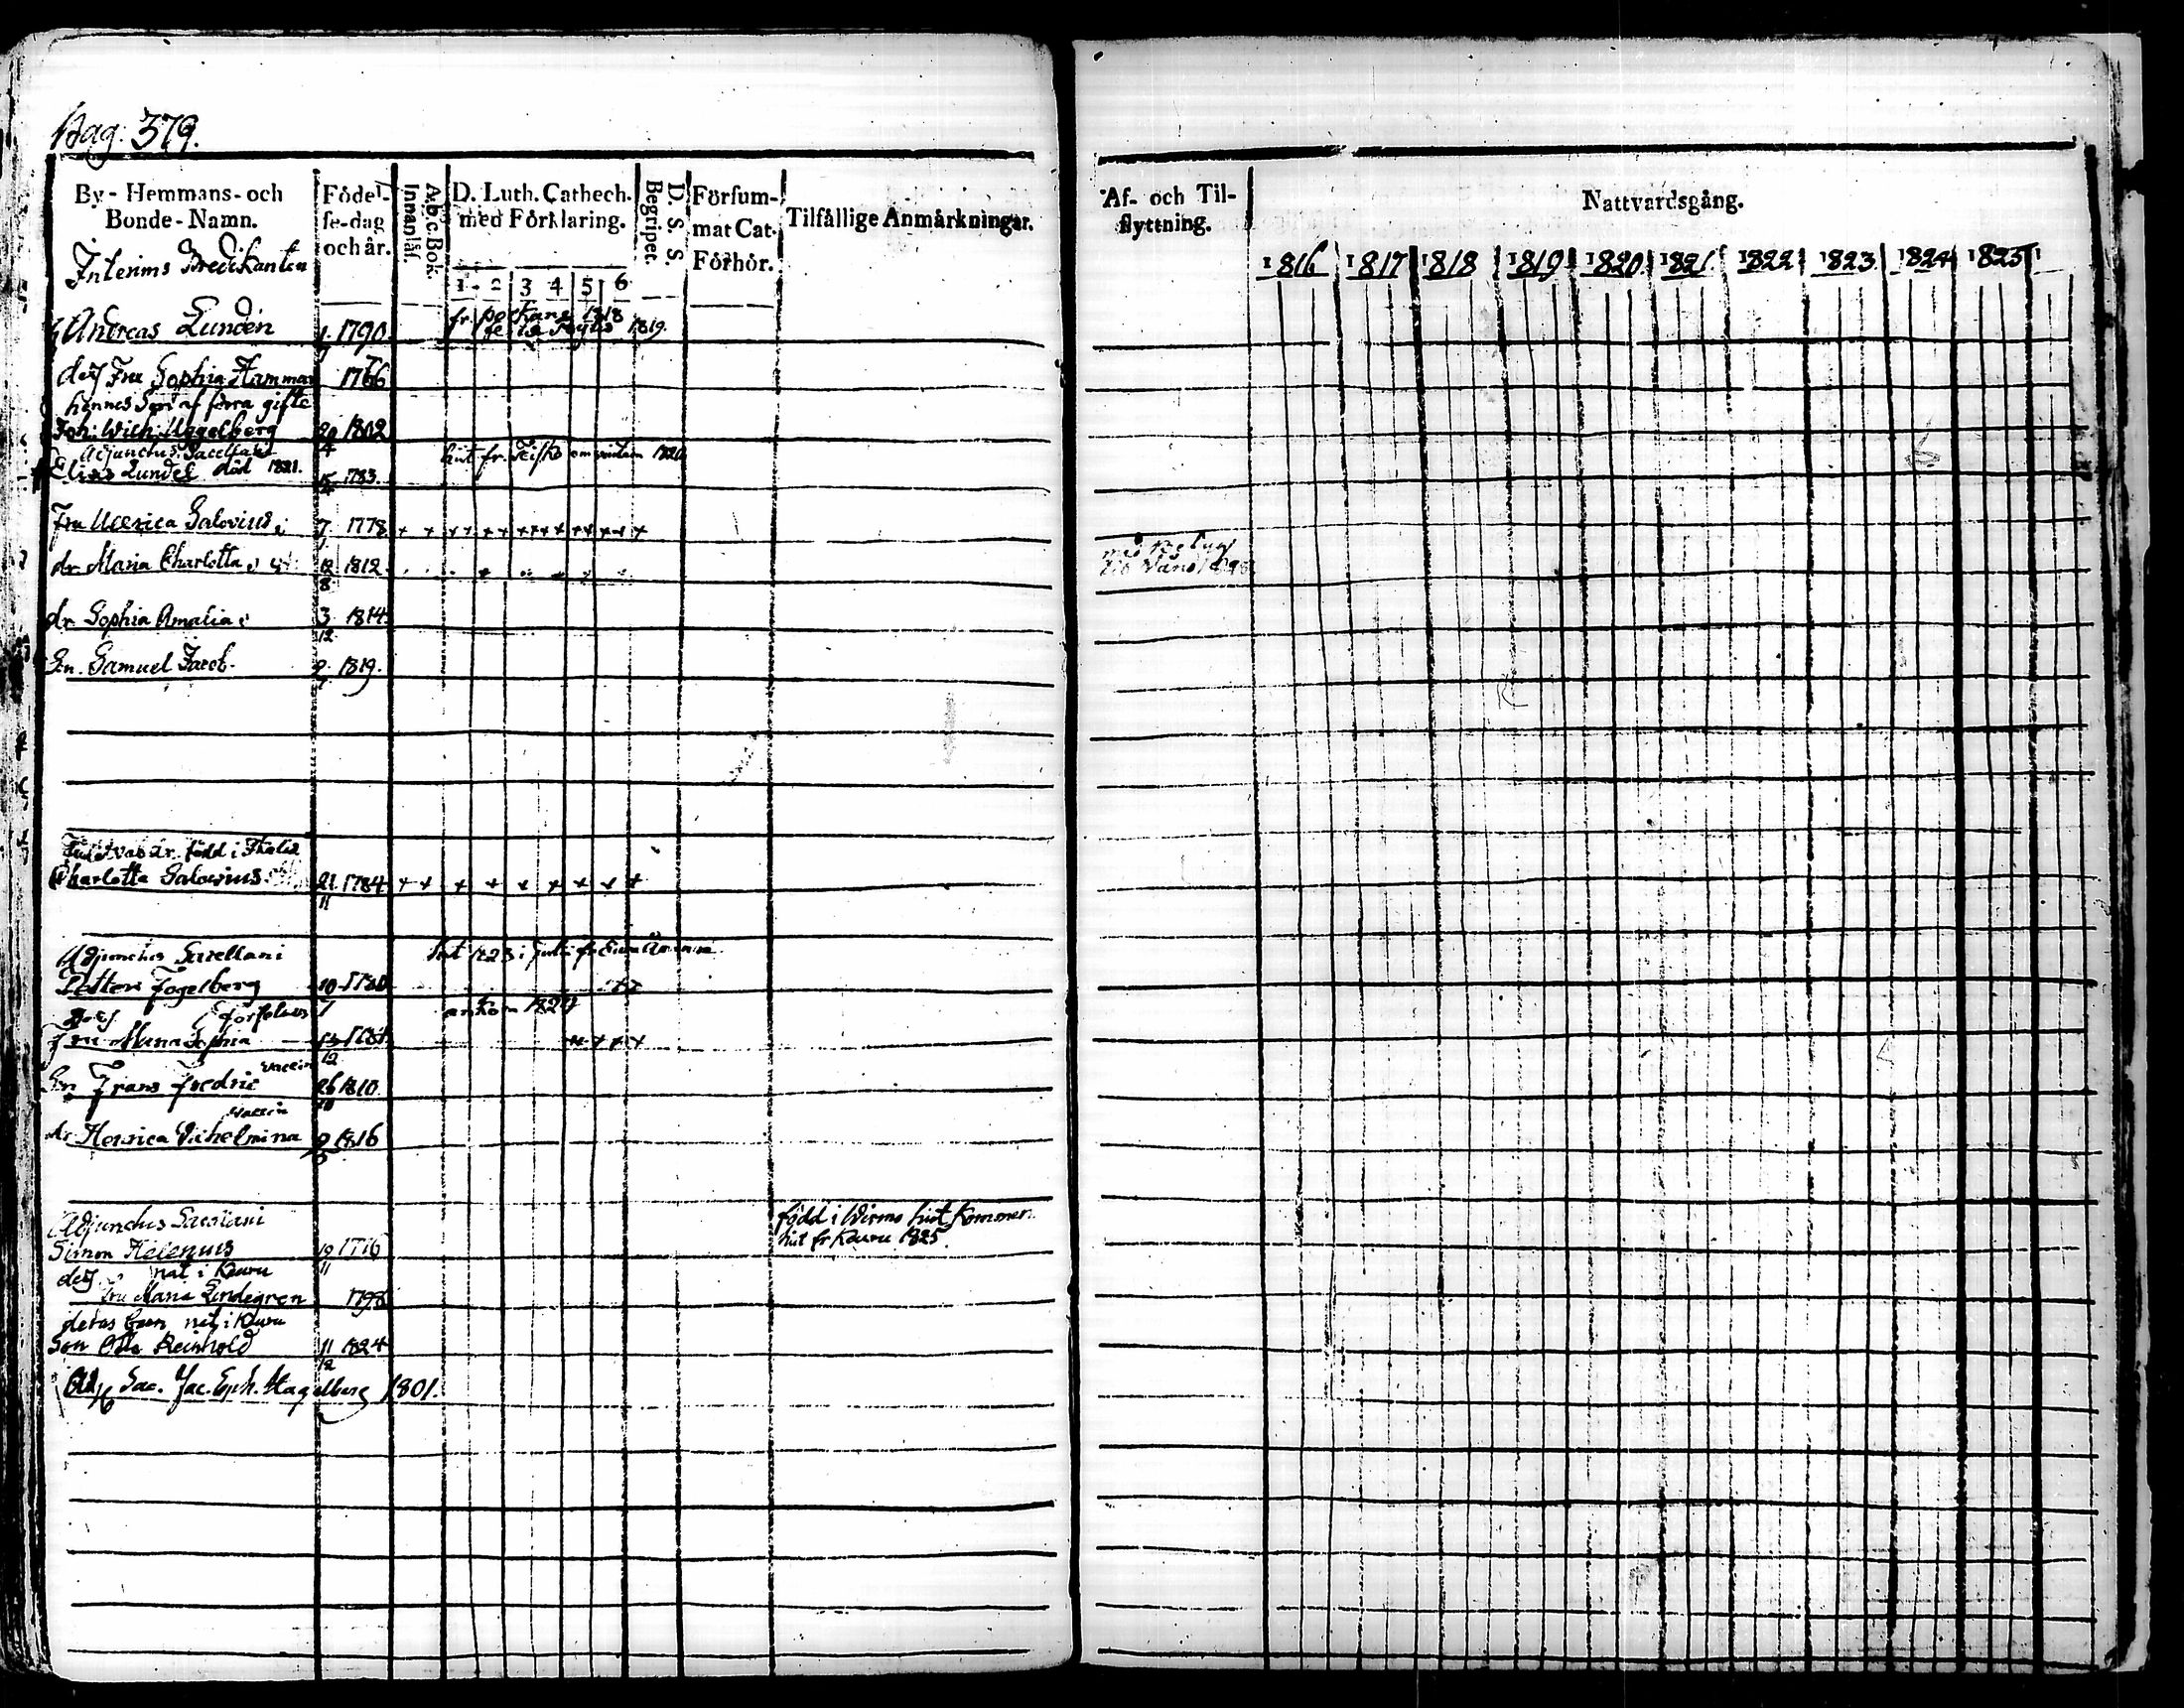 Pag. 379.
By- Hemmans- och Bonde-Namn.
Födelse-dag och år.
A.b.c. Bok. Innanläs.
D. Luth. Cathech. med Förklaring.
1 2 3 4 5 6
D. S. S. Begripet.
Försummat Cat. Förhör.
Tilfällige Anmärkningar.
Af- och Tilflyttning.
Nattvardsgång.
1816 1817 1818 1819 1820 1821 1822 1823 1824 1825
Interims Predikanten
Andreas Lundén 1790 fr. 1818
1819.
dess Fru Sophia Hammar 1766
hennes Son af förra gifte
Joh: Wilh: 20/4 1802
Adjunctus Sacellani hit fr. 1820
Elias Lundel död 1821. 15/4 1783.
Fru Ulrica Salovius 7 1778 + + + + + + + + + + + + +
dr Maria Charlotta 12/8 1812
dr Sophia Amalia 3/12 1814
Sn. Samuel Jacob. 9/7 1819.
född i
Charlotta Salovius 21/11 1784 + + + + + + + + +
Adjunctus Sacellani hit 1823 i fr
Petter Fogelberg 10
dess ankom 1824
Fru Maria Sophia 12 + + + +
vaccin
Sn Frans Fredric 26/10 1810
vaccin
dr Henrica Vilhelmina 9 1816
Adjunctus Sacellani född i Wirmo hit kommen
Simon Helenius 19/11 1776 hit fr Kuru 1825.
dess nat i Kuru
Fru Maria Lindegren 1798
deras barn nat i Kuru
Son Otto Reinhold 11/12 1824
Adj. Sac. Jac. Eph. Hagelberg 1801.